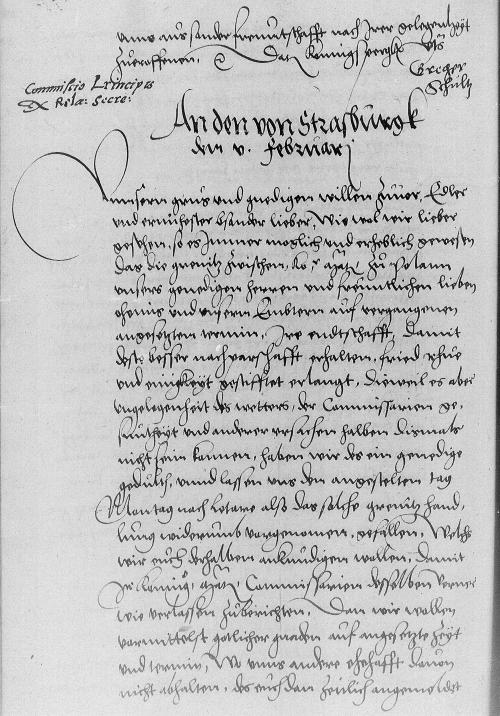 uns aus sonder freuntschafft nach irer gelegenheyt
zueroffenen, Dat. Königsbergk uts
Greger
Schultz
Commissio Principis
Ex Relat: Secre:
An den von Strasburgk
den v. Februarj
Unnsern grus und gnedigen willen zuvor, Edler
und ernuhester bsonder lieber, Wie wol wir lieber
gesehen, so es jmmer moglich und erheblich gewesen
das die grenitz zwischen, Ko. Mat. zu Polann
unsers gnedigen herren und freuntlichen lieben
ohmis und unsern Embtern auf vergangenen
angesetzten termin, Jre endtschafft, damit
deste besser nachparschafft erhalten, fried rhue
und einigkeyt gestifftet erlangt, Dieweil es aber
ungelegenheit des wetters, der Commissarien ge-
santheyt und anderer ursachen halben dismals
nicht sein kannen, haben wir des ein genedige
gedult, unnd lassen uns den angestelten tag
Montag nach Letare also das solche grenitz hand,
lung widerumb vorgenomen, gefallen, Welchs
wir euch derhalben ankundigen wollen, damit
Jr König. Mat. Commissarien desselben ferner
wie verlassen zuberichten, Dan wir wollen
vormittelst gotlicher gnaden auf angesetzte zeyt
und termin, Wo unns andere ehehafft davon
nicht abhalten, des euch dan zeitlich angemeldet